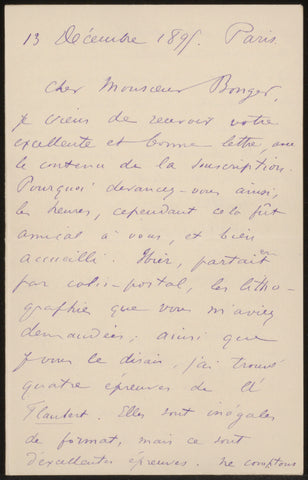 13 Décembre 1895. Paris
Cher Monsieur Bonger,
je viens de recevoir votre
excellente et bonne lettre, avec
le contenu de la souscription.
Pourquoi devancez-vous ainsi,
les heures, cependant cela fût
amical à vous, et bien
accueilli. Hier, partait
par colis-postal, les litho-
graphies que vous m'aviez
demandées; ainsi que
je vous le disais, j'ai trouvé
quatre épreuves de
Flaubert. Elles sont inégales
de format, mais ce sont
d'excellentes épreuves. Ne comptons